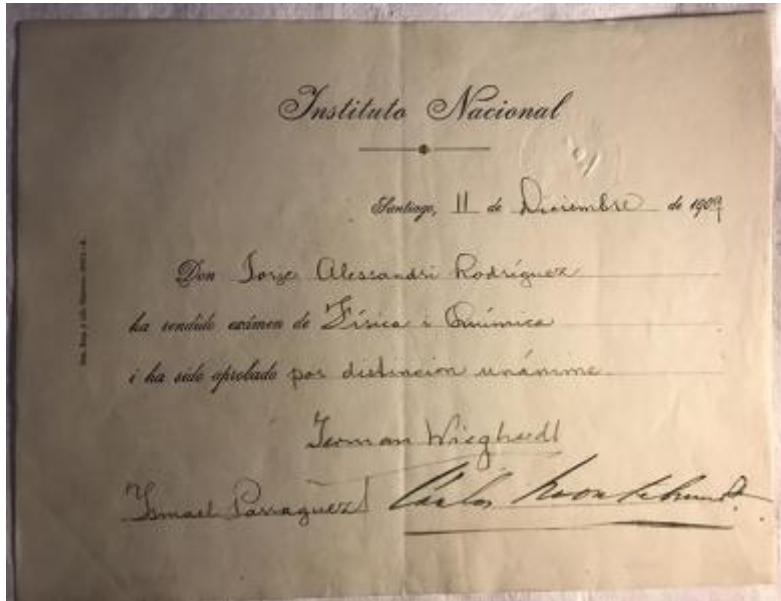 Instituto Nacional
Santiago, 11 de Diciembre de 1909
Don Jorge Alessandri Rodríguez
ha rendido exámen de Física i Química
i ha sido aprobado por distincion unánime
Ismael Parraguez Carlos